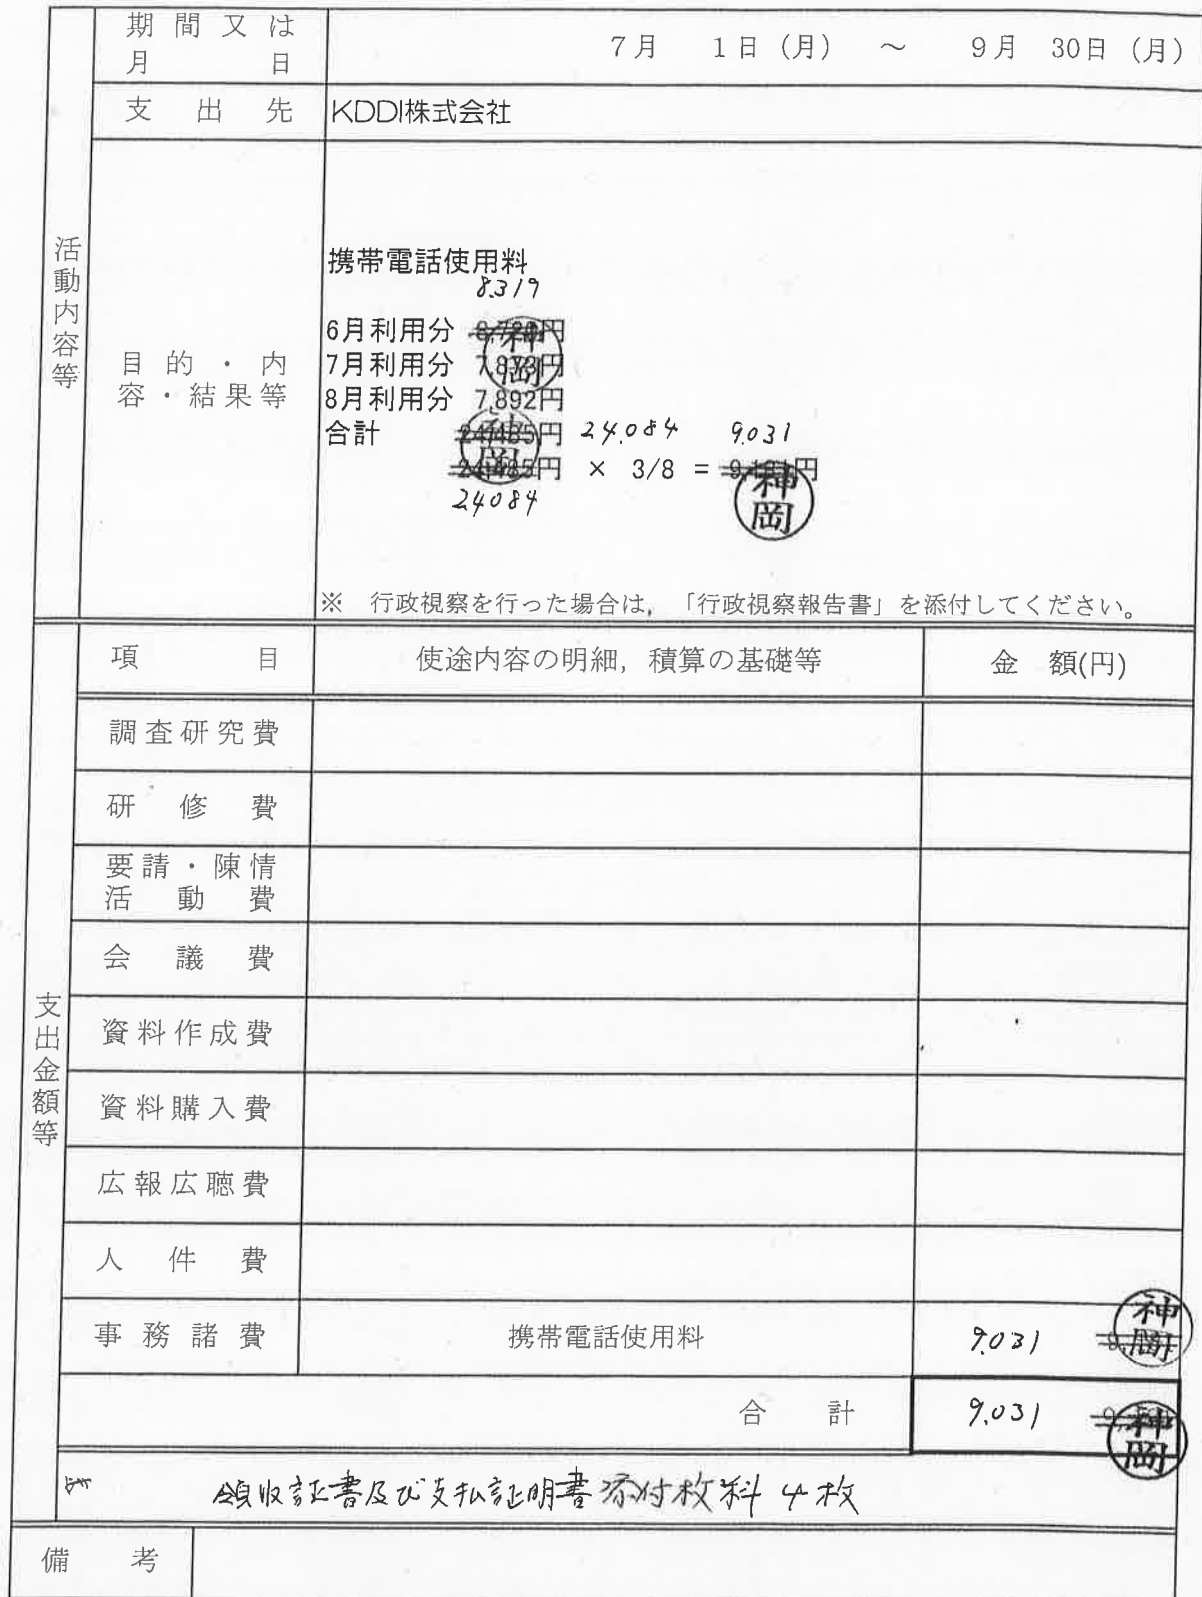 期間又は
月日
7月 1日 (月) ～ 9月 30日 (月)
支出先
KDDI株式会社
活動内容等
目的・内
容・結果等
携帯電話使用料
8.319
6月利用分 円
7月利用分 7,873円
8月利用分 7,892円
合計 24,485円 24.084 9.031
24,485円 × 3/8 = 円
24084
神岡
神岡
神岡
※ 行政視察を行った場合は，「行政視察報告書」を添付してください。
支出金額等
項目 使途内容の明細，積算の基礎等 金額(円)
調査研究費
研修費
要請・陳情
活動費
会議費
資料作成費
資料購入費
広報広聴費
人件費
事務諸費 携帯電話使用料 9.031 神岡
合計 9.031 神岡
領収証書及び支払証明書添付枚料 4枚
備考